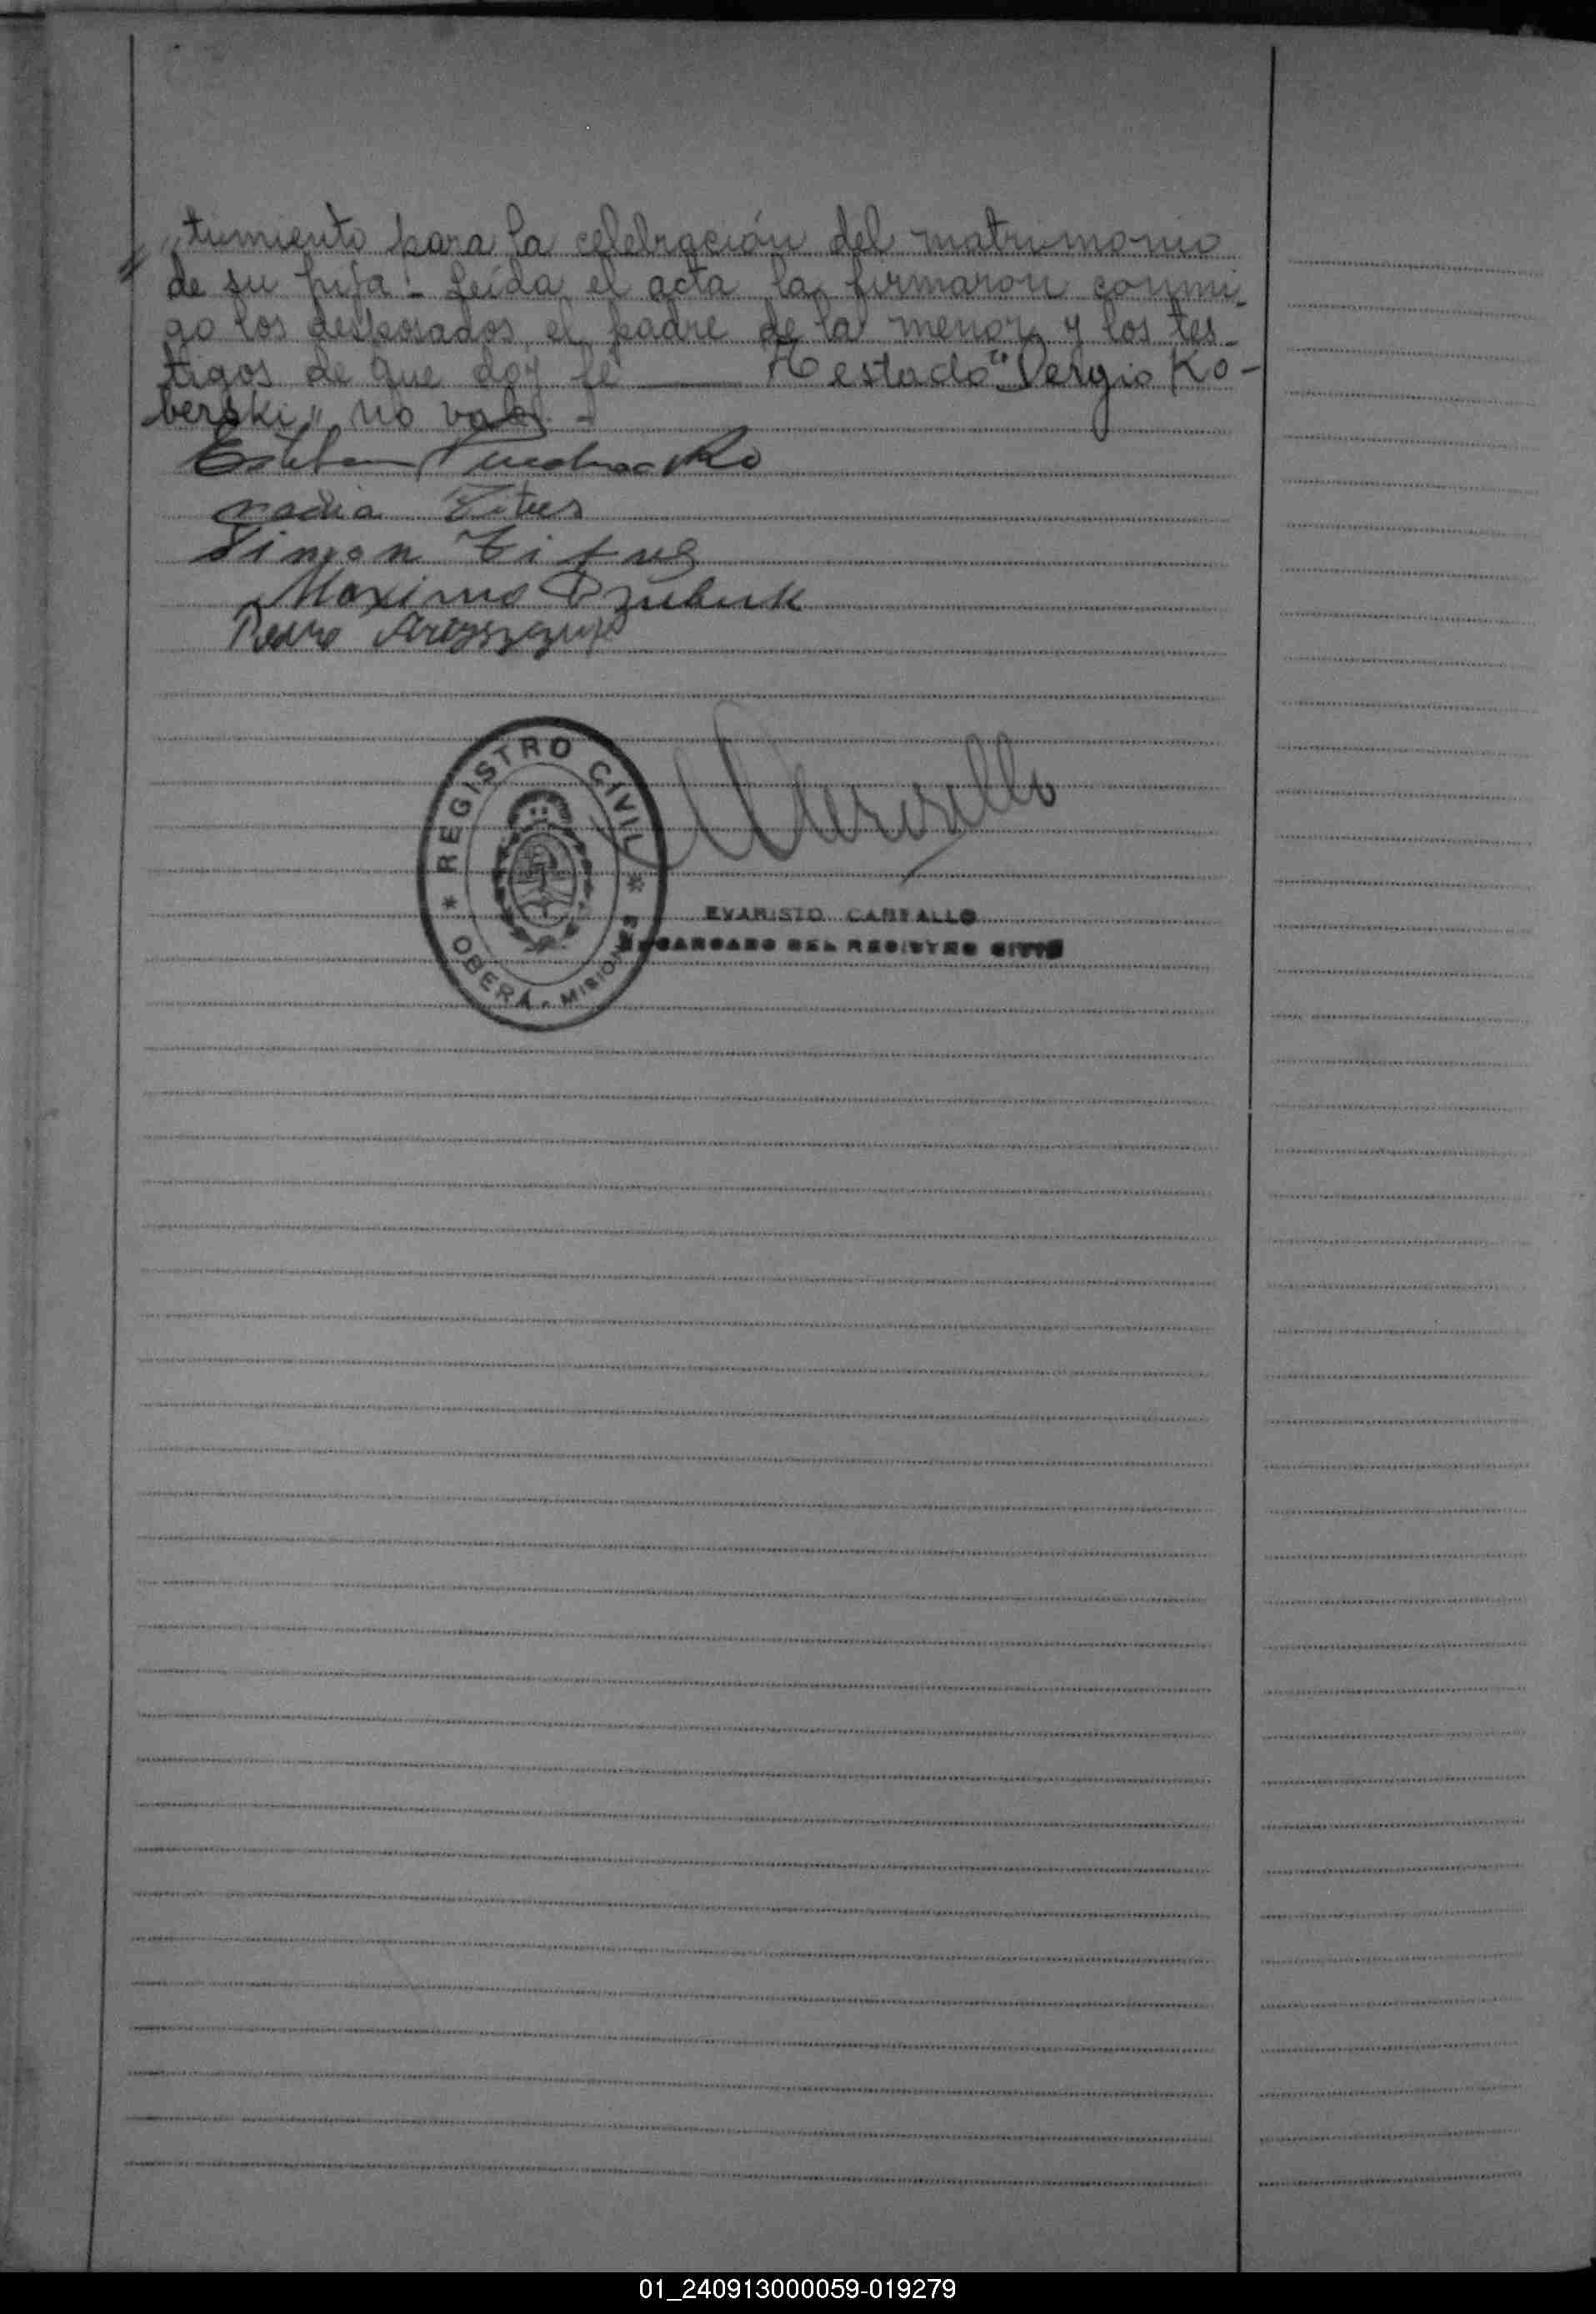 "timiento para la celebración del matrimonio
de su hija.- Leída el acta la firmaron conmi-
go los desposados, el padre de la menor y los tes-
tigos de que doy fe — Testado "Sergio Ko-
berski" no vale.-
Esteban
nadia Titus
Simon Titus
Maximo Dzubuk
Pedro
REGISTRO CIVIL
OBERÁ - MISIONES
EVARISTO CARBALLO
ENCARGADO DEL REGISTRO CIVIL
01_240913000059-019279